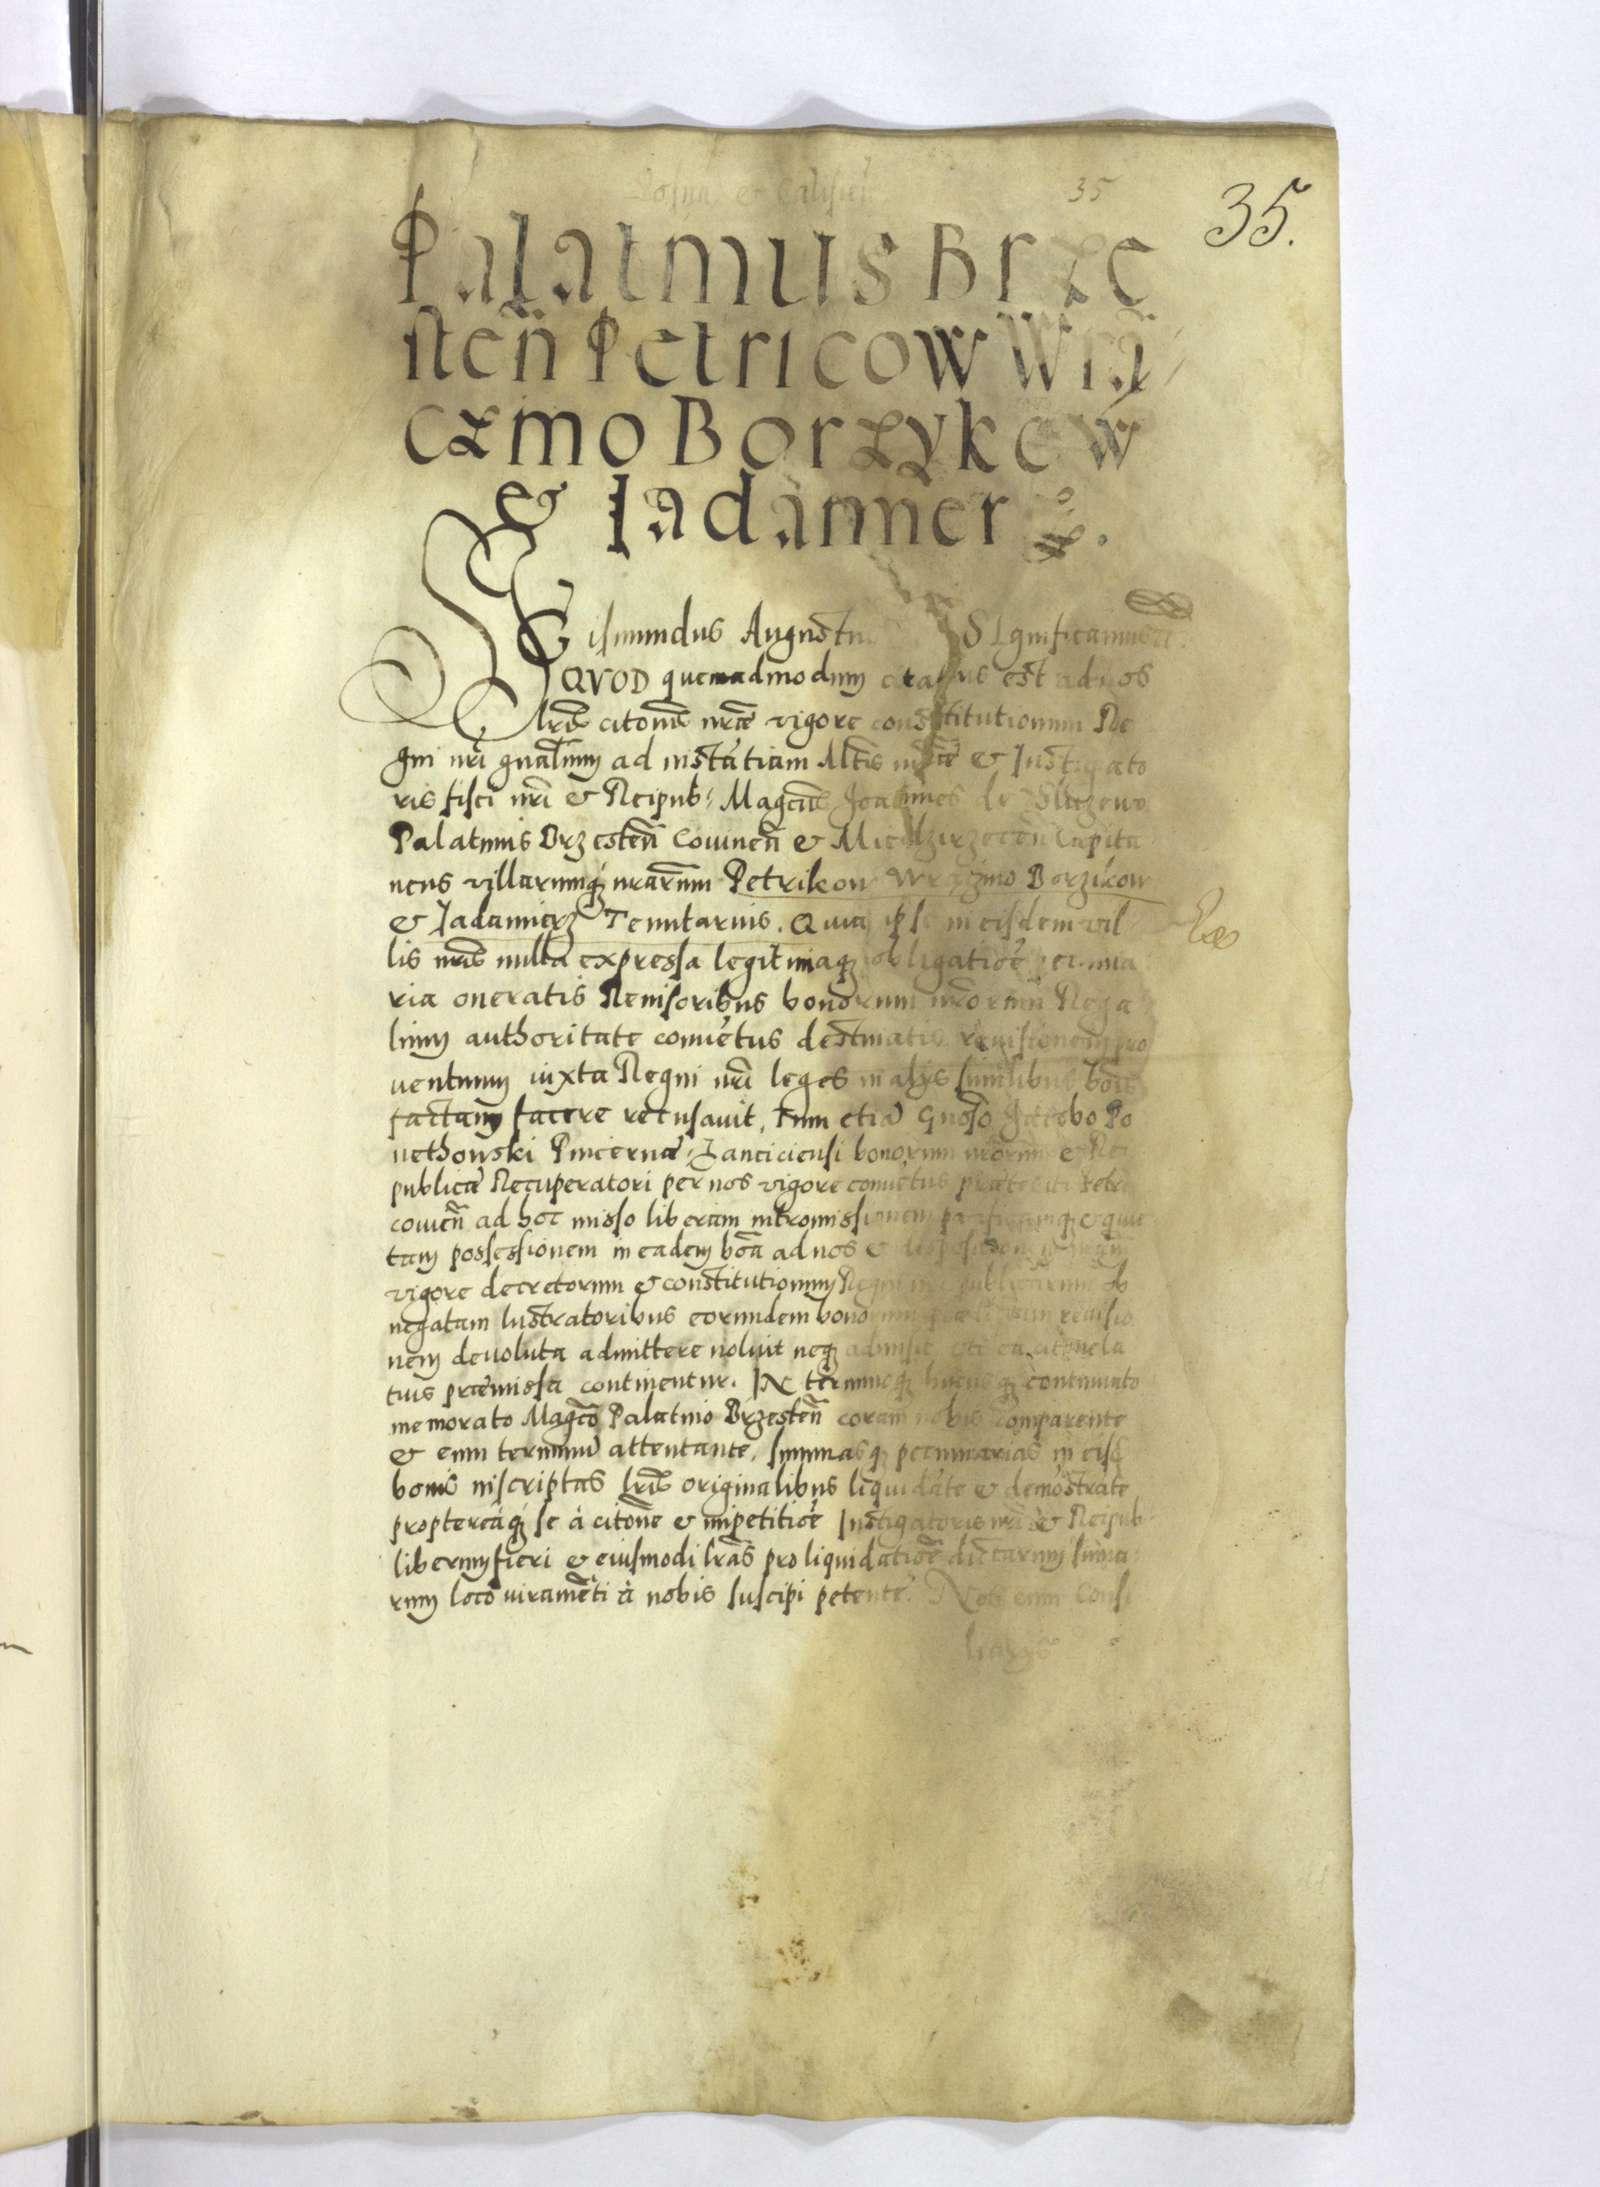 35
35.
Palatinus Brze
sten̄ Petricow Wra
czino Borzykow
& Iadamier
Sigismundus Augustu Significamus
QVOD quemadmodum citatus est ad nos
lrīs citonis nrae vigore constitutionum Re
gni nri gnalium ad instātiam Mtis nrae & Instigato
ris fisci nri & Reipub: Magcus Joannes de Sluzewo
Palatinus Brzesten̄ Covinen̄ & Miedzirzecen̄ Capita
neus villarumq; nrarum Petrikow Wraczino Borzikow
& Jadamierz Tenutarius. Quia ipse in eisdem vil
lis nris nulla expressa legitimaq; obligatiōe pecunia
ria oneratis Revisoribus bonorum nrorum Rega
lium authoritate convētus destinatis revisionem pro
ventuum iuxta Regni nri leges in alijs similibus bonis
factam facere recusavit, Tum etiā Gnoso Jacobo Po
nethowski Pincernae Lanciciensi bonorum nrorum & Rei
publicae Recuperatori per nos vigore convētus praeteriti Petri
covien̄ ad hoc misso liberam intromissionem pacificamq; & quie
tam possessionem in eadem bona ad nos & dispositionem nram
vigore decretorum & constitutionum Regni nri publicarum ob
negatam lustratoribus eorundem bonorum revisio
nem devoluta admittere noluit neq; admisit, uti ea citone la
tius praemissa continentur. IN terminoq; hucusq; continuato
memorato Magco Palatino Brzesten̄ coram nobis comparente
& eum terminū attentante, summasq; pecuniarias in eisd
bonis inscriptas lris originalibus liquidāte & demōstrate
proptereaq; se à citone & impetitiōe Instigatoris nri & Reipub
liberum fieri & eiusmodi lras pro liquidatiōe dictarum suma
rum loco iuramēti à nobis suscipi petente. Nos cum Consi
liarijs